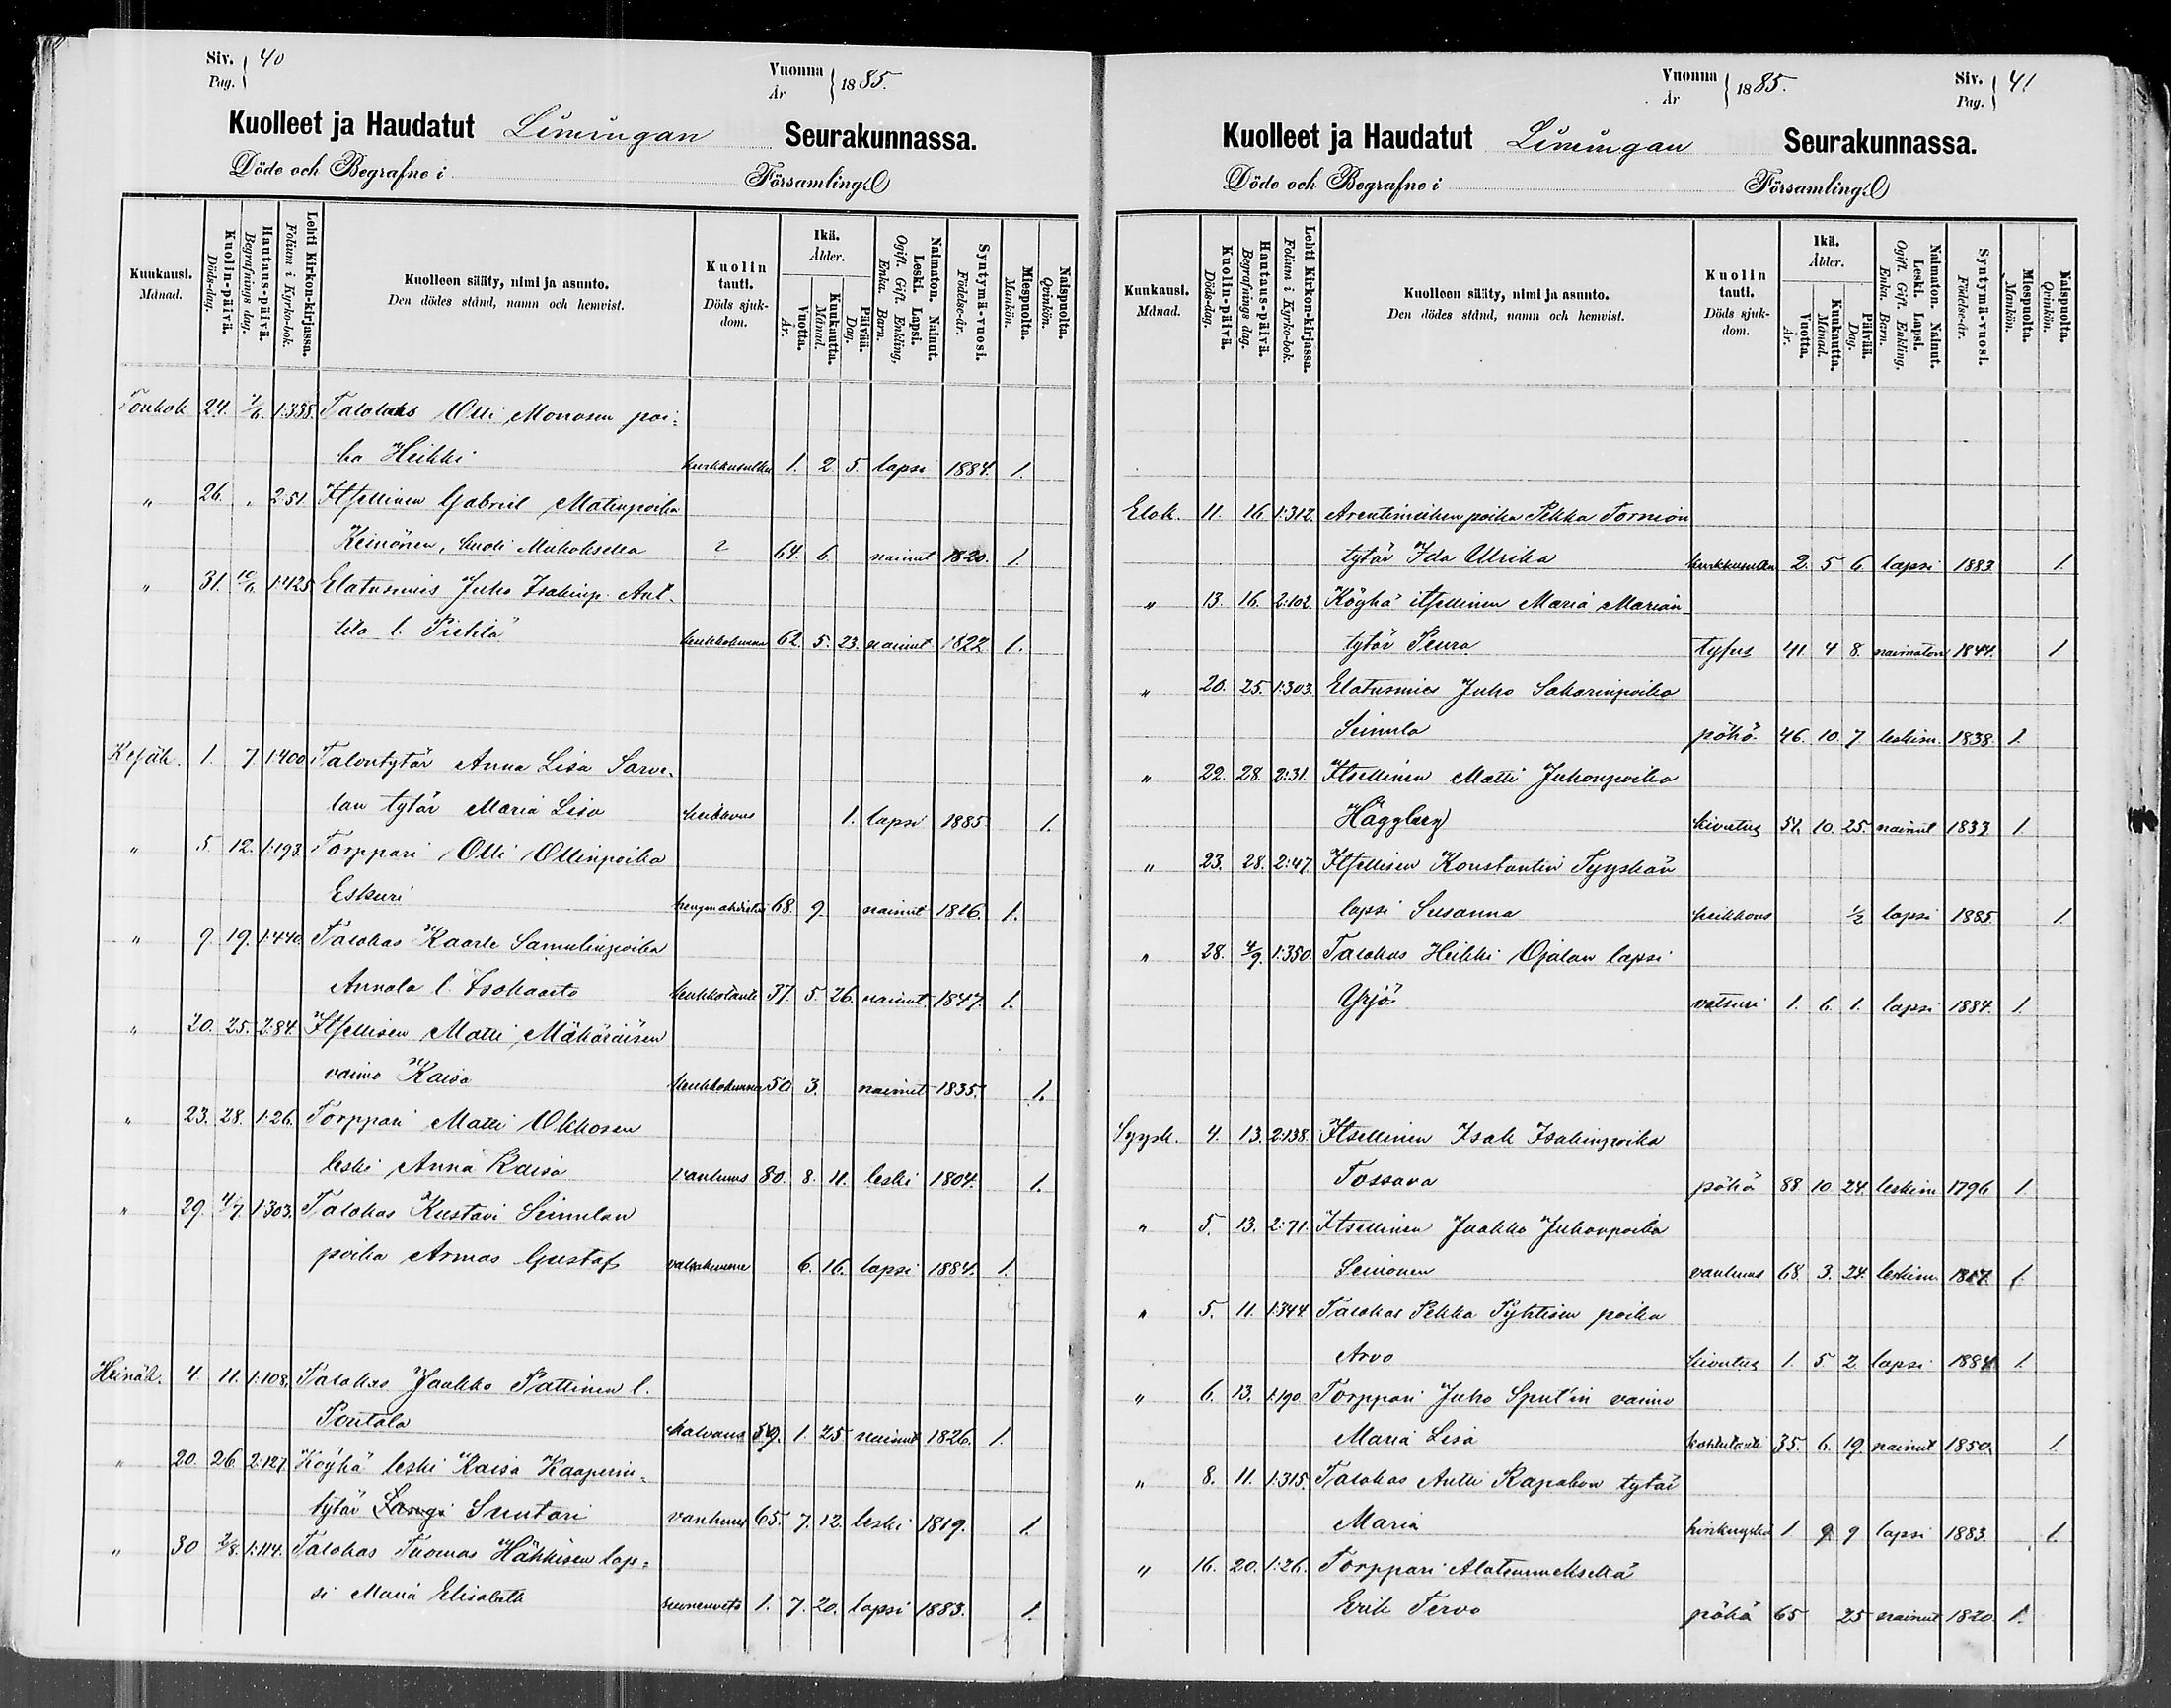 Siv. Pag. 40
Vuonna År 1885.
Kuolleet ja Haudatut Limingan Seurakunnassa.
Döde och Begrafne i Församling.
Kuukausi. Månad.
Kuolin-päivä. Döds-dag.
Hautaus-päivä. Begrafnings dag.
Lehti Kirkon-kirjassa. Folium i Kyrko-bok.
Kuolleen sääty, nimi ja asunto. Den dödes stånd, namn och hemvist.
Kuolin tauti. Döds sjuk-dom.
Ikä. Ålder.
Vuotta. År.
Kuukautta. Månad.
Päivää. Dag.
Naimaton. Nainut. Leski. Lapsi. Ogift. Gift. Enkling, Enka. Barn.
Syntymä-vuosi. Födelse-år.
Miespuolta. Mankön.
Naispuolta. Qvinkön.
Toukok 24. 7/6. 1:358. Talokas Olli Monosen poi-
ka Heikki kurkkusulku 1. 2 5. lapsi 1884. 1.
" 26. " 2:51 Itsellinen Gabriel Matinpoika
Keinönen, kuoli Muhoksella ? 64. 6. nainut 1820. 1.
" 31. 10/6 1:425 Elatusmies Juho Isakinp. Ant-
tila l. Pietilä 62. 5. 23. nainut 1822 1.
Kesäk. 1. 7. 1:400 Talontytär Anna Lisa Sarve-
lan tytär Maria Lisa heikkous 1. lapsi 1885 1.
" 5. 12. 1:193. Torppari Olli Ollinpoika
Eskuri hengenahdistus 68. 9. nainut 1816. 1.
" 9. 19. 1:440. Talokas Kaarle Samulinpoika
Annala l. Isokaarto keuhkotauti 37. 5. 26. nainut 1847. 1.
" 20. 25. 2:84. Itsellisen Matti Mähöräisen
vaimo Kaisa 50 3. nainut 1835. 1.
" 23. 28. 1:26. Torppari Matti Okkosen
leski Anna Kaisa vanhuus 80. 8. 11. leski 1804. 1.
" 29. 4/7. 1:303. Talokas Kustavi Seimelan
poika Armas Gustaf 6. 16. lapsi 1884. 1.
Heinäk. 4. 11. 1:108. Talokas Jaakko Pattinen l.
Pentala halvaus 59. 1. 25 nainut 1826. 1.
" 20. 26 2:127. Köyhä leski Kaisa Kaaperin-
tytär Suutari vanhuus 65. 7. 12. leski 1819. 1.
" 30 2/8. 1:114. Talokas Tuomas Häkkisen lap-
si Maria Elisabeth 1. 7. 20. lapsi 1883. 1.
Vuonna År 1885.
Siv. Pag. 41
Kuolleet ja Haudatut Limingan Seurakunnassa.
Döde och Begrafne i Församling.
Kuukausi. Månad.
Kuolin-päivä. Döds-dag.
Hautaus-päivä. Begrafnings dag.
Lehti Kirkon-kirjassa. Folium i Kyrko-bok.
Kuolleen sääty, nimi ja asunto. Den dödes stånd, namn och hemvist.
Kuolin tauti. Döds sjuk-dom.
Ikä. Ålder.
Vuotta. År.
Kuukautta. Månad.
Päivää. Dag.
Naimaton. Nainut. Leski. Lapsi. Ogift. Gift. Enkling, Enka. Barn.
Syntymä-vuosi. Födelse-år.
Miespuolta. Mankön.
Naispuolta. Qvinkön.
Elok. 11. 16 1:312. Arentimiehen poika Pekka Tornion
tytär Ida Ulrika kurkkusulku 2. 5 6. lapsi 1883 1.
" 13. 16. 2:102. Köyhä itsellinen Maria Marian
tytär Peura tyfus 41. 4 8. naimaton 1844. 1
" 20. 25. 1:303. Elatusmies Juho Sakarinpoika
Seimela pöhö. 46. 10. 7 leskim. 1838. 1.
" 22. 28. 2:31. Itsellinen Matti Juhonpoika
Häggberg kivutus 51. 10. 25. nainut 1833 1.
" 23. 28. 2:47. Itsellisen Konstantin Tyyskän
lapsi Susanna heikkous 1/2 lapsi 1885. 1.
" 28. 4/9. 1:350. Talokas Heikki Ojalan lapsi
Yrjö vatsuri 1. 6. 1. lapsi 1884. 1.
Syysk. 4. 13. 2:138. Itsellinen Isak Isakinpoika
Tossava pöhö 88. 10 24. leskim 1796 1.
" 5. 13. 2:71. Itsellinen Jaakko Juhonpoika
Leinonen vanhuus 68. 3. 24. leskim. 1817. 1.
" 5. 11. 1:344. Talokas Pekka Pyhtisen poika
Arvo kivutus 1. 5 2. lapsi 1884 1.
" 6. 13. 1:190 Torppari Juho Sput'in vaimo
Maria Lisa 35. 6. 19. nainut 1850. 1.
" 8. 11. 1:315. Talokas Antti Rapakon tytär
Maria hinkuyskä 1. 9 9 lapsi 1883. 1.
" 16. 20. 1:26. Torppari Alatemmekseltä
Erik Tervo pöhö 65 25 nainut 1820. 1.